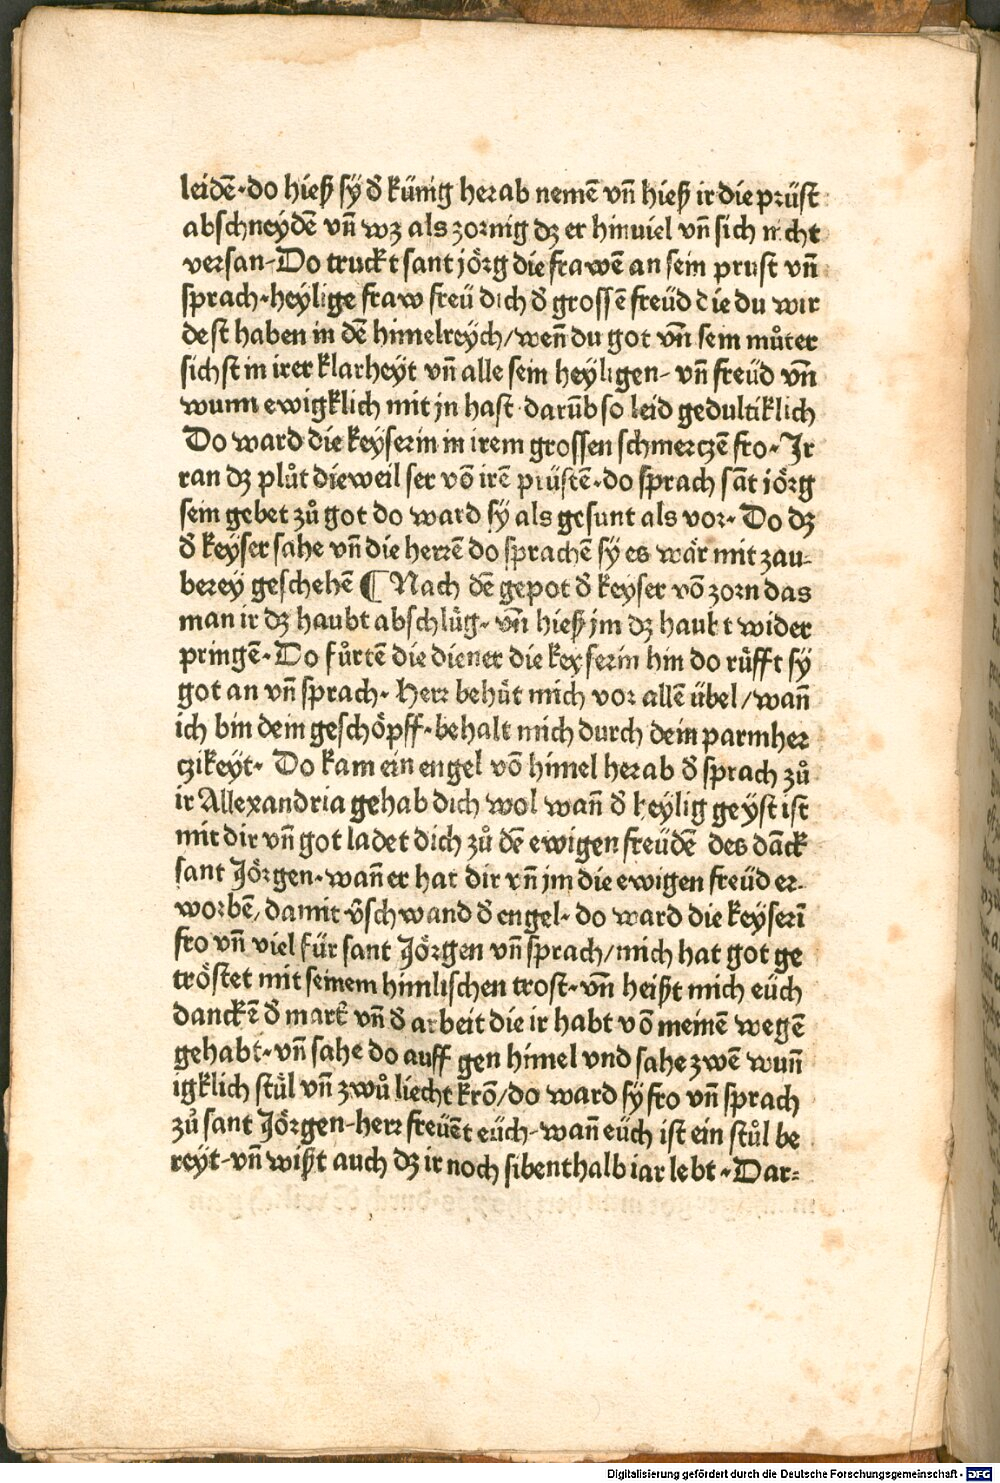 leidē·do hieß sÿ đ künig herab nemē vn̄ hieß ir die prüst
abschneydē vn̄ wz als zornig dz er hinuiel vn̄ sich nicht
versan-Do truckt sant jörg die frawē an sein prust vn̄
sprach·heylige fraw freü dich đ grossē freüd die du wir
dest haben in dē himelreÿch/wen̄ du got vn̄ sein můter
sichst in irer klarheÿt vn̄ alle sein heÿligen-vn̄ freüd vn̄
wunn ewigklich mit jn hast·darūb so leid gedultiklich
Do ward die keÿserin in irem grossen schmerczē fro·Jr
ran dz plůt dieweil ser vō irē prüstē·do sprach sāt jörg
sein gebet zů got do ward sÿ als gesunt als vor·Do dz
đ keÿser sahe vn̄ die herrē do sprachē sÿ es wär mit zau-
berey geschehē ¶ Nach dē gepot đ keyser vō zorn das
man ir dz haubt abschlüg·vn̄ hieß jm dz haubt wider
pringē·Do fůrtē die diener die keyserin hin do rüfft sÿ
got an vn̄ sprach·Herr behüt mich vor allē übel/wan̄
ich bin dein geschöpff·behalt mich durch dein parmher
czikeyt·Do kam ein engel vō himel herab đ sprach zů
ir Allexandria gehab dich wol wan̄ đ heylig geÿst ist
mit dir vn̄ got ladet dich zů dē ewigen freüdē des dāck
sant Jörgen·wan̄ er hat dir vn̄ jm die ewigen freüd er-
worbē/damit v̄schwand đ engel·do ward die keyserī
fro vn̄ viel für sant Jörgen vn̄ sprach/mich hat got ge
tröstet mit seinem himlischen trost·vn̄ heißt mich eüch
danckē đ mark vn̄ đ arbeit die ir habt vō meinē wegē
gehabt·vn̄ sahe do auff gen himel vnd sahe zwē wun̄
igklich stül vn̄ zwů liecht krō/do ward sÿ fro vn̄ sprach
zů sant Jörgen-herr freüēt eüch-wan̄ eüch ist ein stůl be
reyt-vn̄ wißt auch dz ir noch sibenthalb iar lebt·Dar-
Digitalisierung gefördert durch die Deutsche Forschungsgemeinschaft - DFG